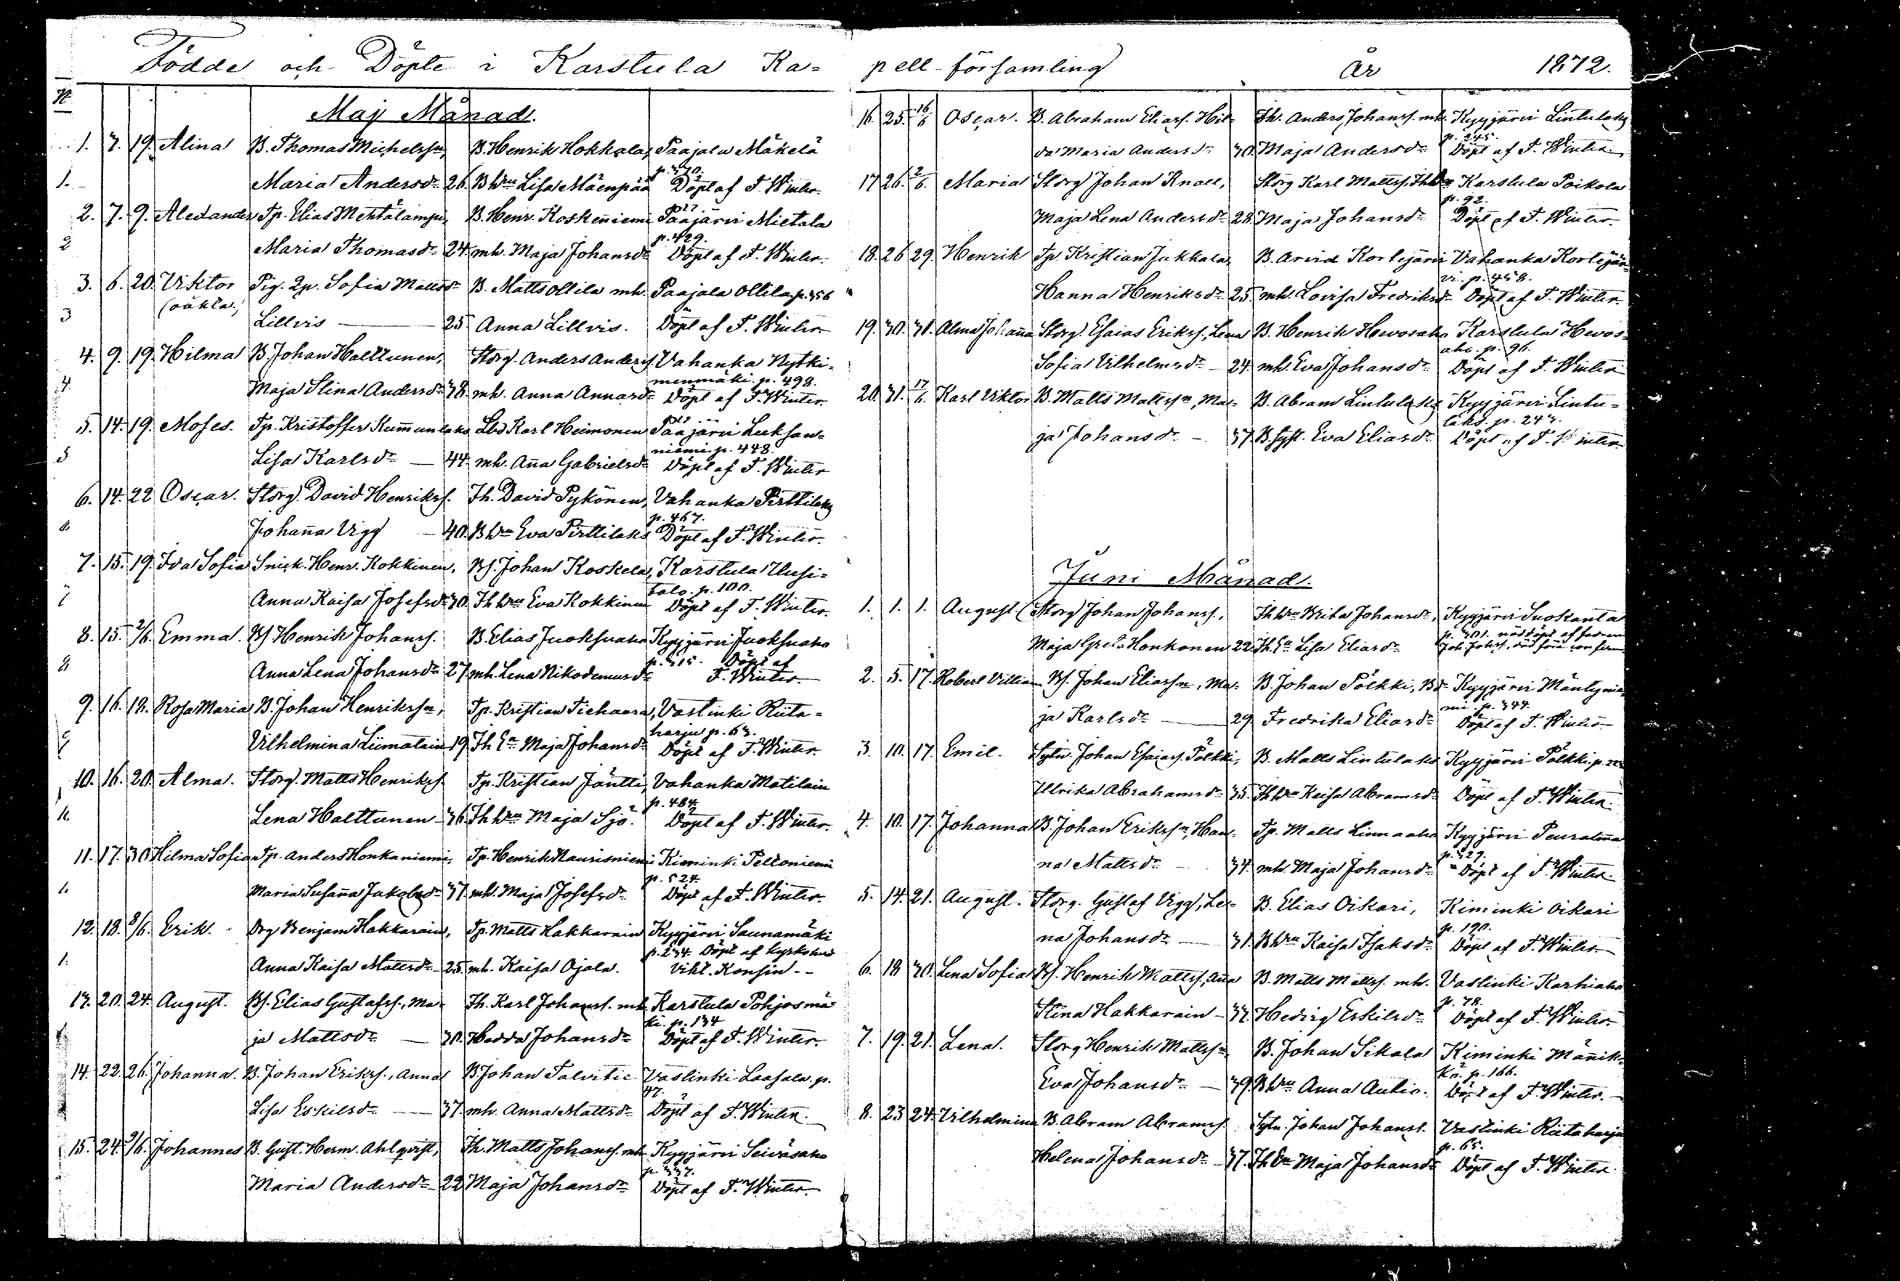 Födde och Döpte i Karstula Ka=
pell-församling år 1872.
N
Maj Månad.
1. 7. 19. Alina B. Thomas Michelss:n, B. Henrik Hokkala, Paajala Mäkelä
p. 370.
1. Maria Andersd:r 26. B hru Lisa Mäenpää Döpt af F. Winter.
2. 7. 9. Alexander Tp. Elias B. Henr. Koskeniemi Pääjärvi Mietala
p. 429.
2 Maria Thomasd:r 24. mh. Maja Johansd:r Döpt af F. Winter.
3. 6. 20. Viktor Pig. Sofia Mattsd:r B. Matts Ollila mh. Paajala Ollila p. 356
(oäkta)
3 Lillvis 25 Anna Lillvis. Döpt af F. Winter
4. 9. 19. Hilma B. Johan Halttunen, Storg. Anders Anderss. Vahanka Nytki=
menmäki. p. 498.
4. Maja Stina Andersd:r 38. mh. Anna Annasd:r Döpt af F. Winter.
5. 14. 19. Moses. Tp. Kristoffer Kumunlaks Lbd Karl Heimonen Pääjärvi Leuksan=
niemi p. 448.
5 Lisa Karlsd:r 44. mh. Anna Gabrielsd:r Döpt af F. Winter
6. 14. 22 Oscar. Storg. David Henrikss. Th. David Pykönen, Vahanka Pirttilaks
p. 467.
6 Johanna Vigg 40. B hru Eva Pirttilaks Döpt af F. Winter.
7. 15. 19. Ida Sofia Snick. Henr. Kokkinen, Bs. Johan Koskela, Karstula Uusi=
talo. p. 100.
7 Anna Kaisa Josefsd:r 30. Th hru Eva Kokkinen Döpt af F. Winter.
8. 15. 2/6. Emma. Bs Henrik Johanss. B. Elias Juoksuaho Kyyjärvi Juoksuaho
p. 315. Döpt af
8 Anna Lena Johansd:r 27. mh. Lena Nikodemusd:r F. Winter.
9. 16. 18. Rosa Maria B. Johan Henrikss:n, Tp. Kristian Tiehaara, Vastinki Riita=
harju p. 63.
9 Vilhelmina Liimatain 19. Th E:a Maja Johansd:r Döpt af F. Winter.
10. 16. 20. Alma. Storg. Matts Henrikss. Tp. Kristian Jäntti, Vahanka Matilain
p. 484.
10. Lena Halttunen 36. Th hru Maja Sjö. Döpt af F. Winter.
11. 17. 30. Hilma Sofia Tp. Anders Honkaniemi, Tp. Henrik Naurisniemi Kiminki Peltoniemi
p. 524.
Maria Susanna Jakobsd:r 37. mh. Maja Josefsd:r Döpt af F. Winter.
12. 18. 8/6. Erik. Drg Benjam Hakkarain, Tp. Matts Hakkarain Kyyjärvi Saunamäki
p. 234. Döpt af kyrkoherd
1. Anna Kaisa Mattsd:r 25. mh. Kaisa Ojala. Vikt. Konsin
13. 20. 24. August. Bs. Elias Gustafss., Ma= Th. Karl Johanss. mh. Karstula Pohjosmä=
ki. p. 134
ja Mattsd:r 30. Hedda Johansd:r Döpt af F. Winter.
14. 22. 26. Johanna. B. Johan Erikss., Anna B Johan Talvitie Vastinki Laasala. p.
47.
Lisa Eskilsd:r 37. mh. Anna Mattsd:r Döpt af F. Winter.
15. 24. 9/6. Johannes B. Gust. Herm. Ahlqvist, Th. Matts Johanss. mh. Kyyjärvi Seiväsaho
p. 337.
Maria Andersd:r 22. Maja Johansd:r Döpt af F. Winter.
16. 25. 16/6 Oscar. B. Abraham Eliass. Hil= Th. Anders Johanss. mh. Kyyjärvi Lintulaks
p. 245.
da Maria Andersd:r 30. Maja Andersd:r Döpt af F. Winter.
17. 26. 2/6. Maria Storg Johan Knall, Storg Karl Mattss. Karstula Poikola
p. 92.
Maja Lena Andersd:r 28. Maja Johansd:r Döpt af F. Winter.
18. 26. 29. Henrik Tp. Kristian Jukkala, B. Arvid Kortejärvi Vahanka Kortejär=
vi. p. 458.
Hanna Henriksd:r 25. mh. Lovisa Fredriksd:r Döpt af F. Winter
19. 30. 31. Alma Johanna Storg. Esaias Erikss, Lena B. Henrik Hevosaho Karstula Hevos=
aho. p. 96.
Sofia Vilhelmsd:r 24. mh. Eva Johansd:r Döpt af F. Winter
20. 31. 17/6. Karl Viktor B. Matts Mattss:n, Ma= B. Abram Lintulaks Kyyjärvi Lintu=
laks. p. 243.
ja Johansd:r 37. B. hust. Eva Eliasd:r Döpt af F. Winter.
Juni Månad.
1. 1. 1. August Storg Johan Johanss., Th hru Brita Johansd:r, Kyyjärvi Suokanta
p. 301. nöddöpt af fadren
Maja Greta Honkonen 22. Th. E:a Lisa Eliasd:r
2. 5. 17. Robert Villiam Bs. Johan Eliass:n, Ma= B Johan Pölkki, Bd:r Kyyjärvi Mäntynie=
mi p. 344.
ja Karlsd:r 29. Fredrika Eliasd:r Döpt af F. Winter
3. 10. 17. Emil. Sytn. Johan Esaiass. Pölkki, B. Matts Lintulaks Kyyjärvi Pölkki p. 22
Ulrika Abrahamsd:r 35. Th hru Kaisa Abramsd:r Döpt af F. Winter.
4. 10. 17. Johanna B. Johan Erikss:n, Han= Tp. Matts Linnaaho Kyyjärvi Peuralinna
p. 329.
na Mattsd:r 34. mh. Maja Johansd:r Döpt af F. Winter.
5. 14. 21. August. Storg. Gustaf Vigg, Le= B. Elias Oikari, Kiminki Oikari
p. 190.
na Johansd:r 31. B hru Kaisa Isaksd:r Döpt af F. Winter
6. 18. 30. Lena Sofia Bs. Henrik Mattss, Anna B. Matts Mattss. mh. Vastinki Karhiaho
p. 78.
Stina Hakkarain 32. Hedvig Eskilsd:r Döpt af F. Winter.
7. 19. 21. Lena. Storg Henrik Mattss:n B. Johan Sikala Kiminki Männik=
kö. p. 166.
Eva Johansd:r 39. B hru Anna Autio. Döpt af F. Winter.
8. 23. 24. Vilhelmina B. Abram Abramss. Sytn. Johan Johanss. Vastinki Riitaharju
p. 65.
Helena Johansd:r 37. Th E:a Maja Johansd:r Döpt af F. Winter.